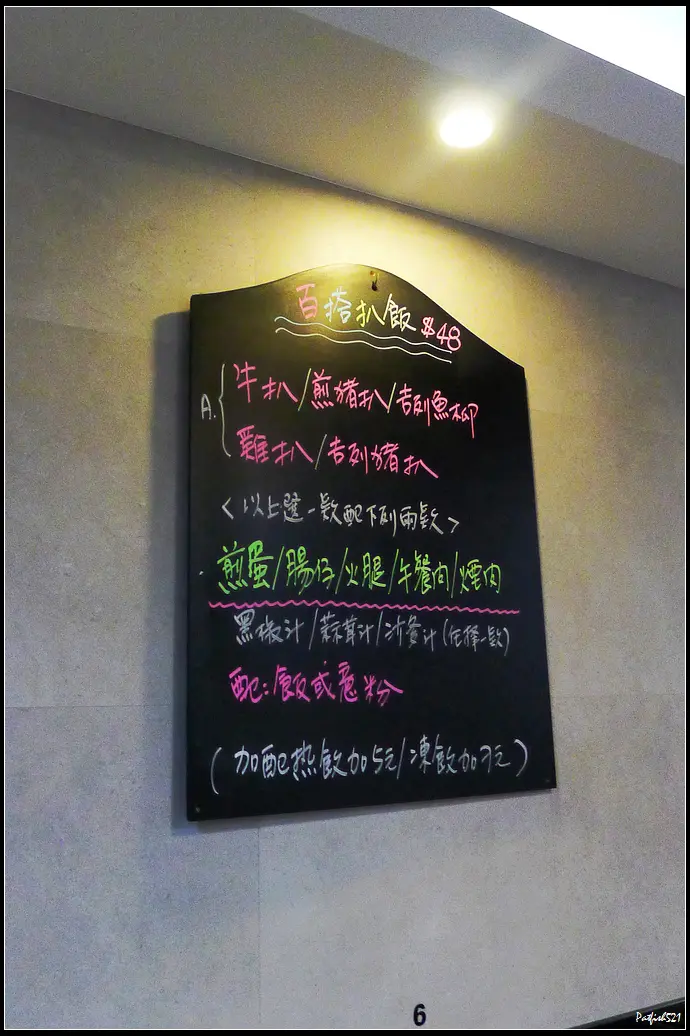 百搭扒飯 $48
A. 牛扒/煎豬扒/吉列魚柳
雞扒/吉列豬扒
<以上選一款配下列兩款>
煎蛋/腸仔/火腿/午餐肉/煙肉
黑椒汁/蒜茸汁/沙爹汁(任擇一款)
配:飯或意粉
(加配热飲加5元/凍飲加7元)
6
Patfish521